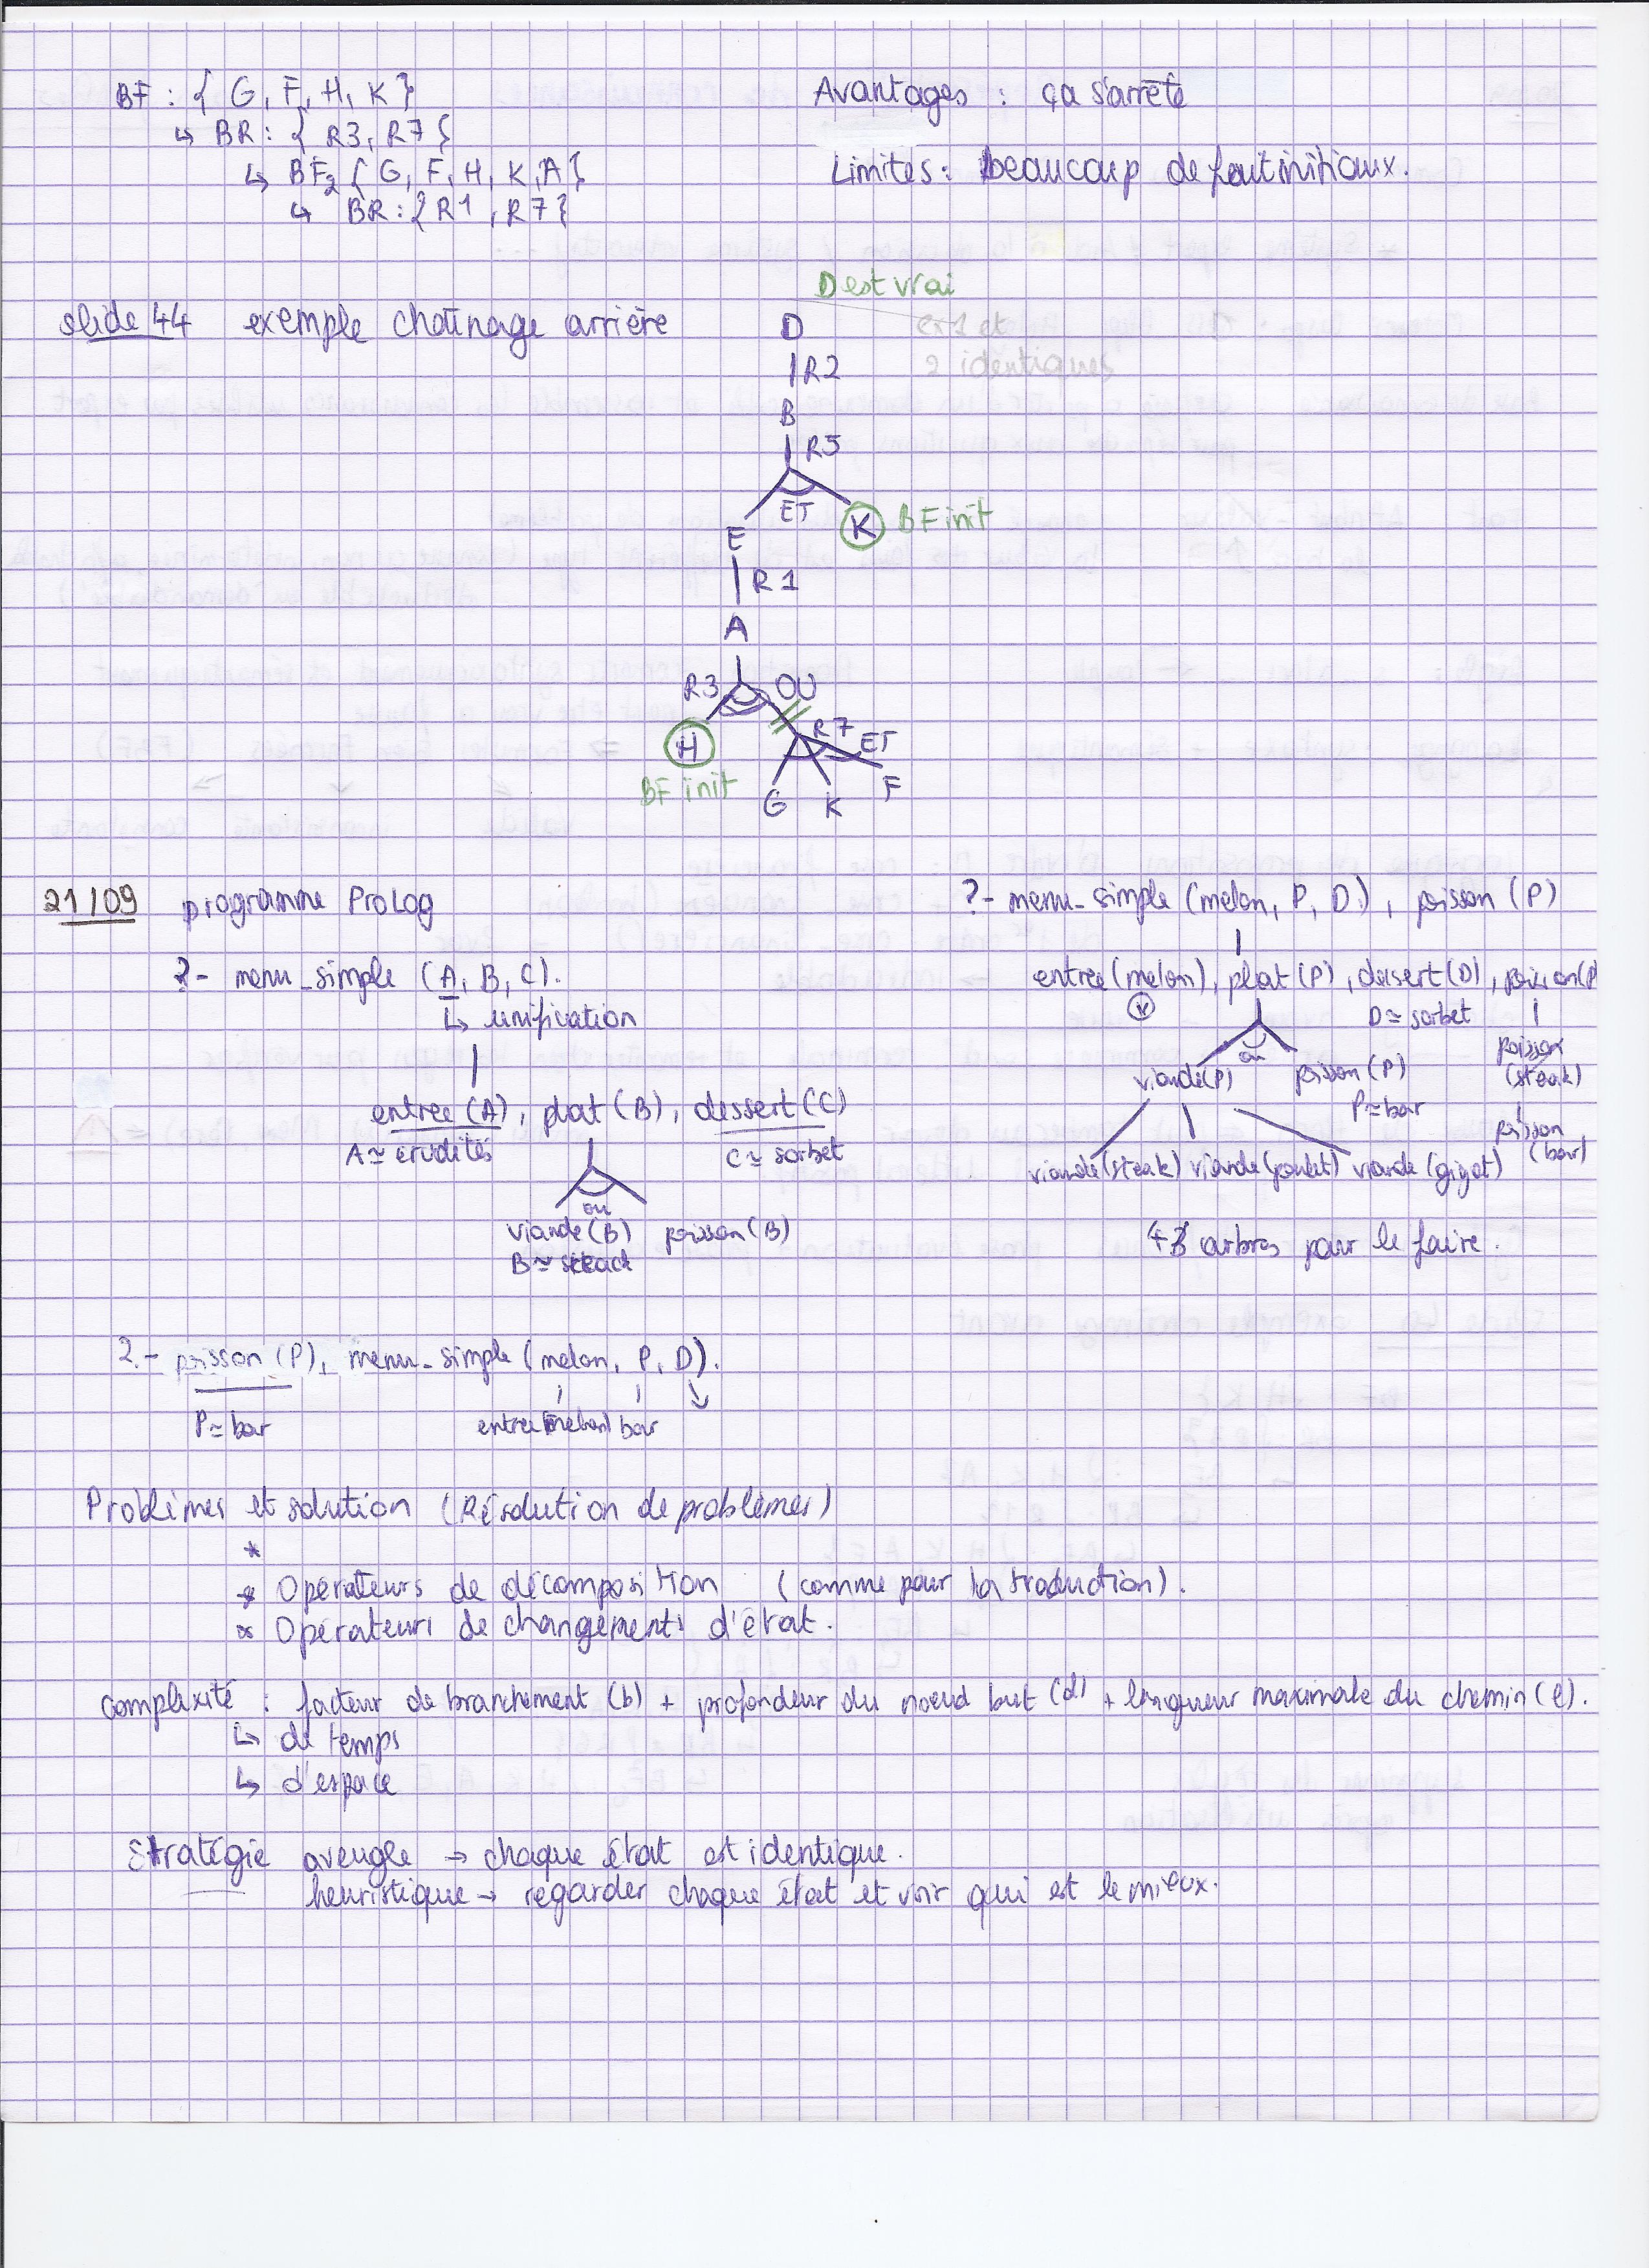 BF : { G, F, H, K }
↳ BR : { R3, R7 }
↳ BF2 { G, F, H, K, A }
↳ BR : { R1, R7 }
Avantages : ça s'arrête
Limites : beaucoup de fait initiaux.
slide 44 exemple chaînage arrière
D est vrai
D
er 1 et
2 identiques
R2
B
R5
ET
E
K BF init
R1
A
R3 OU
H
BF init
R7 ET
G K F
21/09 programme Prolog
?- menu_simple (A, B, C).
↳ unification
entree (A), plat (B), dessert (C)
A ≃ crudités
C ≃ sorbet
ou
viande (B) poisson (B)
B ≃ steack
?- menu_simple (melon, P, D), poisson (P)
entree (melon), plat (P), dessert (D), poisson (P
V
D ≃ sorbet
ou
viande (P) poisson (P)
P ≃ bar
poisson
(steak)
poisson
(bar)
viande (steak) viande (poulet) viande (gigot)
arbres pour le faire.
?- poisson (P), menu_simple (melon, P, D).
P ≃ bar
entree (melon) bar
Problèmes et solution (Résolution de problèmes)
*
* Opérateurs de décomposition (comme pour la traduction).
* Opérateurs de changements d'état.
complexité : facteur de branchement (b) + profondeur du noeud but (d) + longueur maximale du chemin (e).
↳ de temps
↳ d'espace
Stratégie aveugle → chaque état est identique.
heuristique → regarder chaque état et voir qui est le mieux.